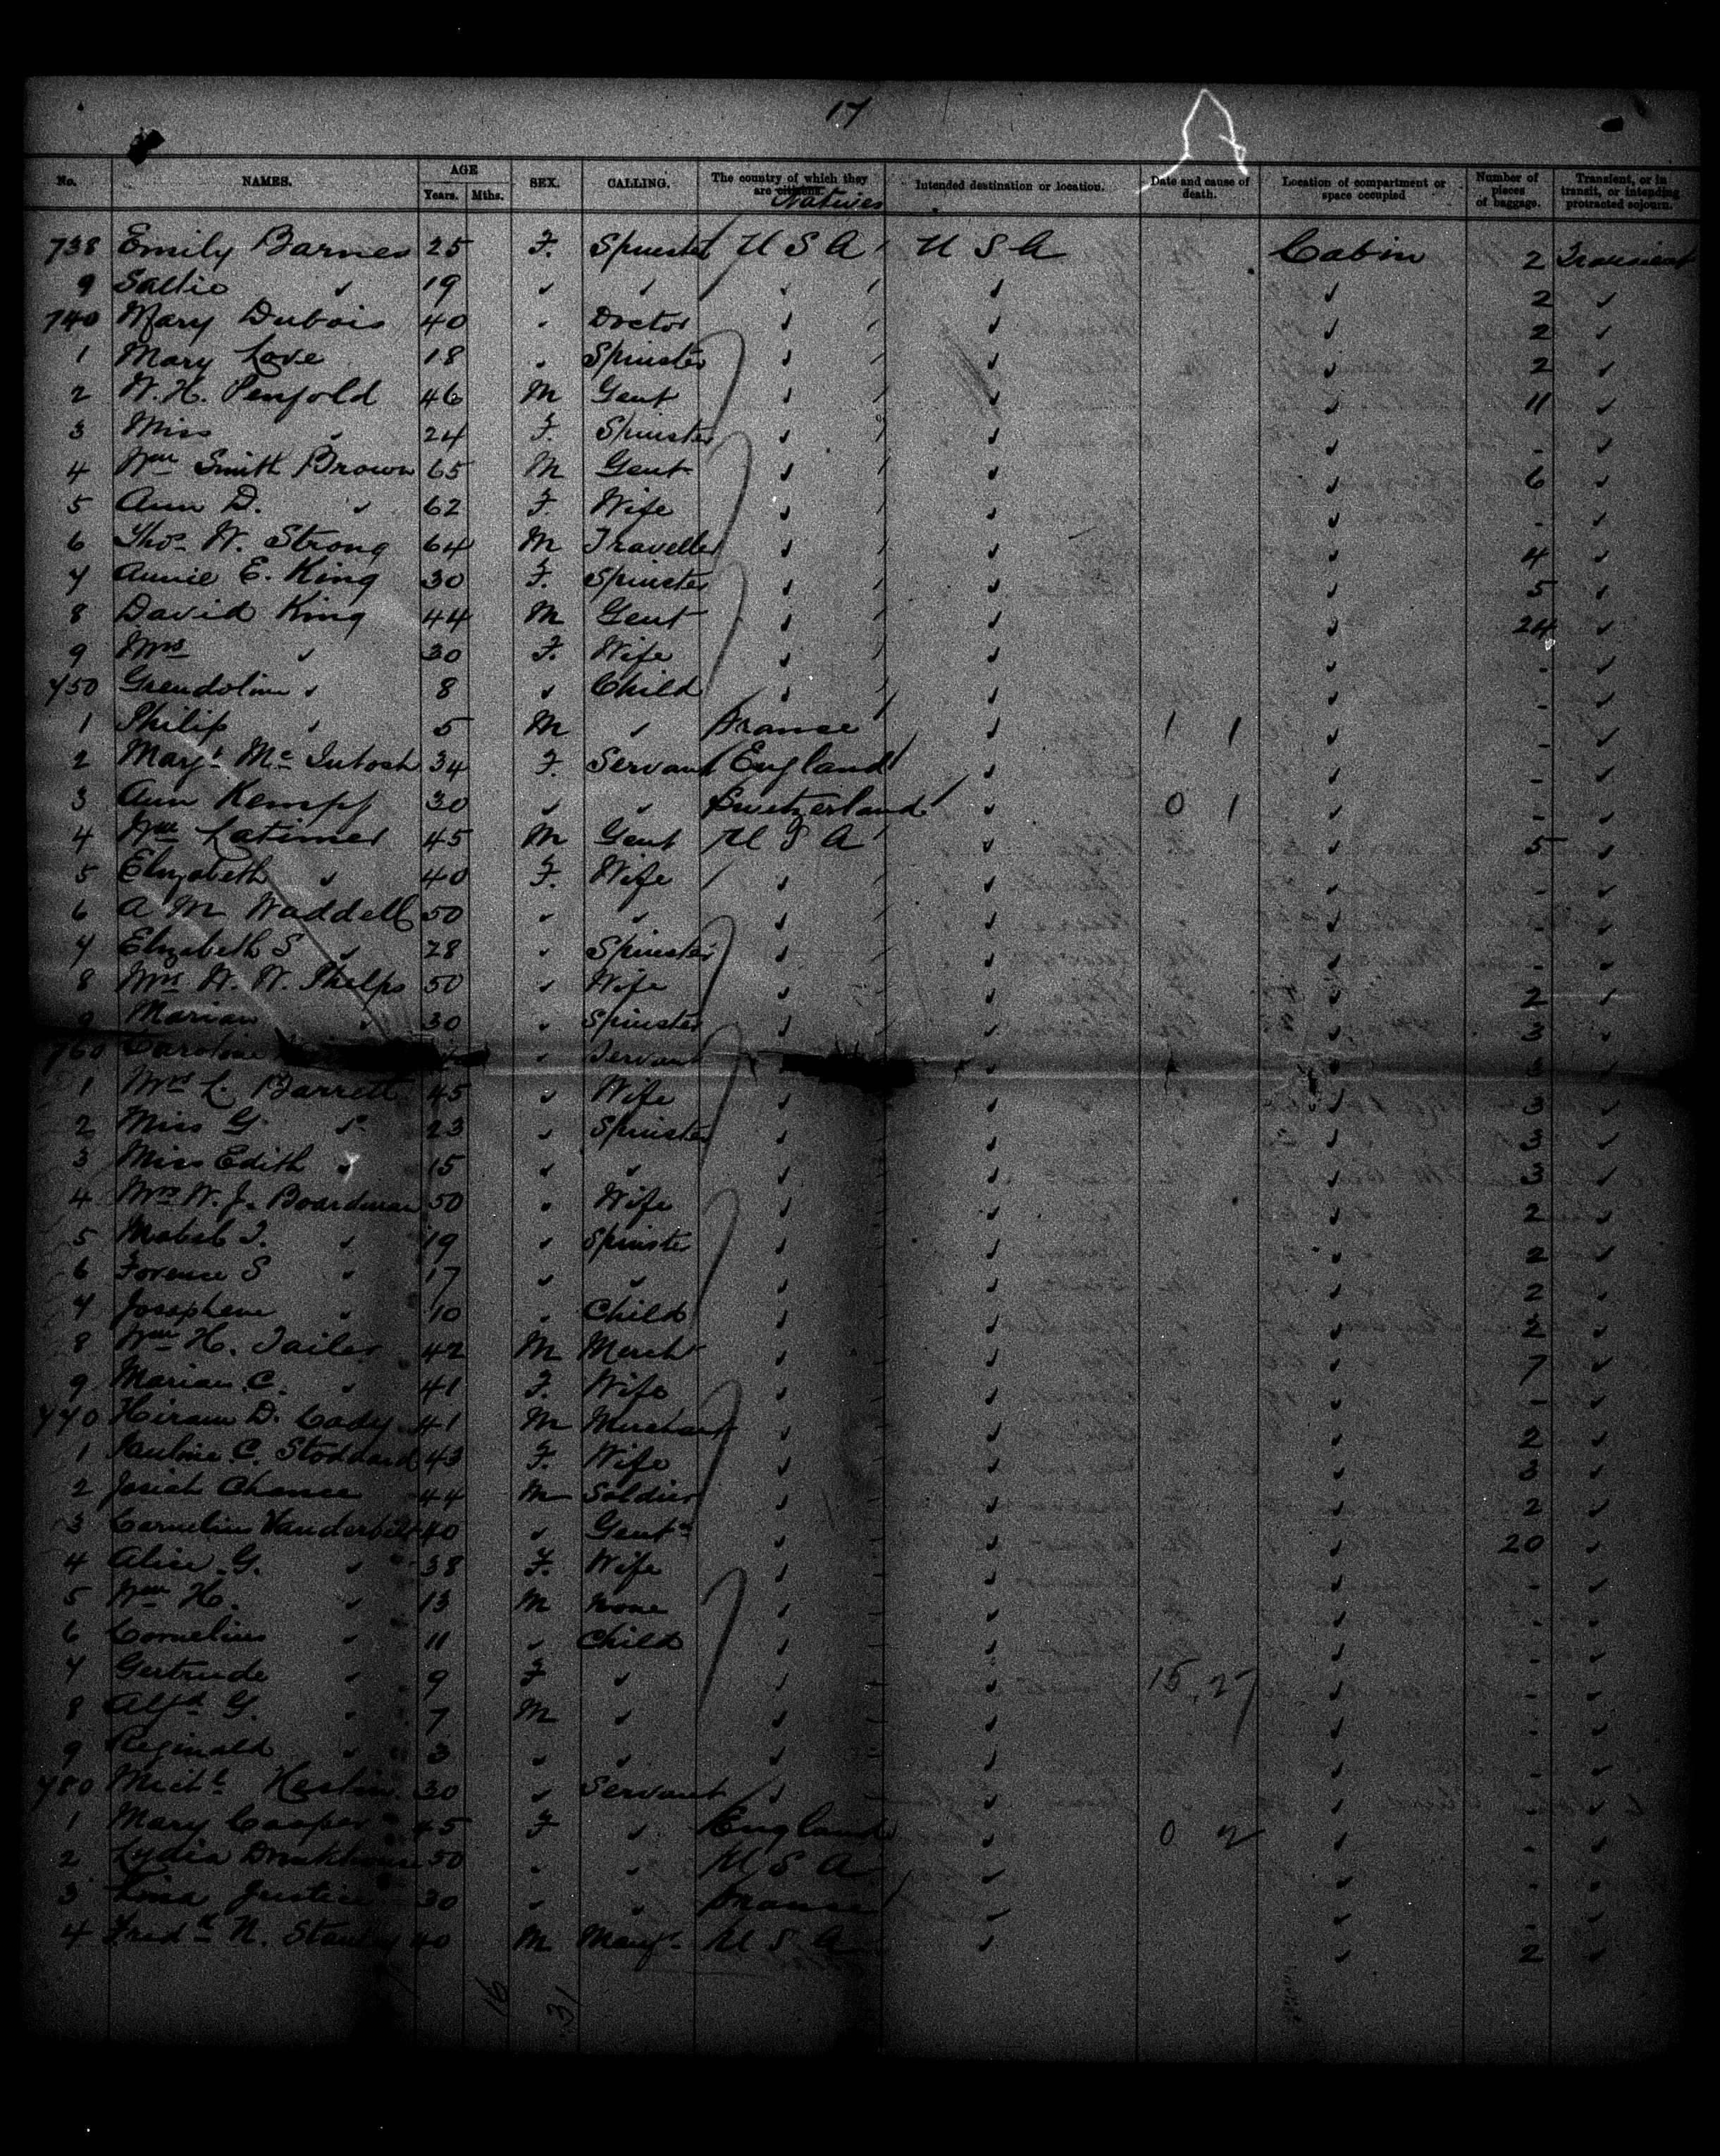 17
No. NAMES. AGE Years. Mths. SEX. CALLING. The country of which they are citizens. Natives Intended destination or location. Date and cause of death. Location of compartment or space occupied Number of pieces of baggage. Transient, or in transit, or intending protracted sojourn.
738 Emily Barnes 25 F. Spinster U S A U S A Cabin 2 Transient
9 Sallie ✓ 19 ✓ ✓ ✓ ✓ ✓ 2 ✓
740 Mary Dubois 40 " Doctor ✓ ✓ ✓ 2 ✓
1 Mary Love 18 " Spinster ✓ ✓ ✓ 2 ✓
2 W. H. Penfold 46 M Gent ✓ ✓ ✓ 11 ✓
3 Miss " 24 F. Spinster ✓ ✓ ✓ - ✓
4 Wm Smith Brown 65 M Gent ✓ ✓ ✓ 6 ✓
5 Ann D. ✓ 62 F. Wife ✓ ✓ ✓ - ✓
6 Thos. W. Strong 64 M Traveller ✓ ✓ ✓ 4 ✓
7 Annie E. King 30 F. Spinster ✓ ✓ ✓ 5 ✓
8 David King 44 M Gent ✓ ✓ ✓ 24 ✓
9 Mrs ✓ 30 F. Wife ✓ ✓ ✓ - ✓
750 Grendolin ✓ 8 ✓ Child ✓ ✓ ✓ - ✓
1 Philip ✓ 5 M ✓ France ✓ 1 1 ✓ - ✓
2 Margt. Mc Intosh 34 F. Servant England ✓ ✓ - ✓
3 Ann Kempf 30 ✓ ✓ Switzerland ✓ 0 1 ✓ - ✓
4 Wm Latimer 45 M Gent U S A ✓ ✓ 5 ✓
5 Elizabeth ✓ 40 F. Wife ✓ ✓ ✓ - ✓
6 A M Waddell 50 ✓ ✓ ✓ ✓ ✓ - ✓
7 Elizabeth S ✓ 28 ✓ Spinster ✓ ✓ ✓ - ✓
8 Mrs W. W. Phelps 50 ✓ Wife ✓ ✓ ✓ 2 ✓
9 Marian ✓ 30 ✓ Spinster ✓ ✓ ✓ 3 ✓
760 Caroline ✓ Servant ✓ ✓ 3 ✓
1 Mrs L. Barrett 45 ✓ Wife ✓ ✓ ✓ 3 ✓
2 Miss G ✓ 23 ✓ Spinster ✓ ✓ ✓ 3 ✓
3 Miss Edith ✓ 15 ✓ ✓ ✓ ✓ ✓ 3 ✓
4 Mrs W. J. Boardman 50 ✓ Wife ✓ ✓ ✓ 2 ✓
5 Mabel T. ✓ 19 ✓ Spinster ✓ ✓ ✓ 2 ✓
6 Forence S ✓ 17 ✓ ✓ ✓ ✓ ✓ 2 ✓
7 Josephene ✓ 10 ✓ Child ✓ ✓ ✓ 2 ✓
8 Wm H. Tailer 42 M Mercht ✓ ✓ ✓ 7 ✓
9 Marian C. ✓ 41 F. Wife ✓ ✓ ✓ - ✓
770 Hiram D. Cady 41 M Merchant ✓ ✓ ✓ 2 ✓
1 Pauline C. Stoddard 43 F. Wife ✓ ✓ ✓ 3 ✓
2 Josiah Chance 44 M Soldier ✓ ✓ ✓ 2 ✓
3 Cornelius Vanderbilt 40 ✓ Gentn ✓ ✓ ✓ 20 ✓
4 Alice G. ✓ 38 F. Wife ✓ ✓ ✓ - ✓
5 Wm H. ✓ 13 M none ✓ ✓ ✓ - ✓
6 Cornelius ✓ 11 ✓ Child ✓ ✓ ✓ - ✓
7 Gertrude ✓ 9 F ✓ ✓ ✓ 15 27 ✓ - ✓
8 Alfd G. ✓ 7 M ✓ ✓ ✓ ✓ - ✓
9 Reginald ✓ 3 ✓ ✓ ✓ ✓ ✓ - ✓
780 Michl 30 ✓ Servant ✓ ✓ ✓ - ✓
1 Mary Cooper 45 F ✓ England ✓ 0 2 ✓ - ✓
2 Lydia 50 ✓ ✓ U S A ✓ ✓ - ✓
3 Justice 30 ✓ ✓ France ✓ ✓ - ✓
4 Fredk N. 40 M Manfr U S A ✓ ✓ 2 ✓
16 31